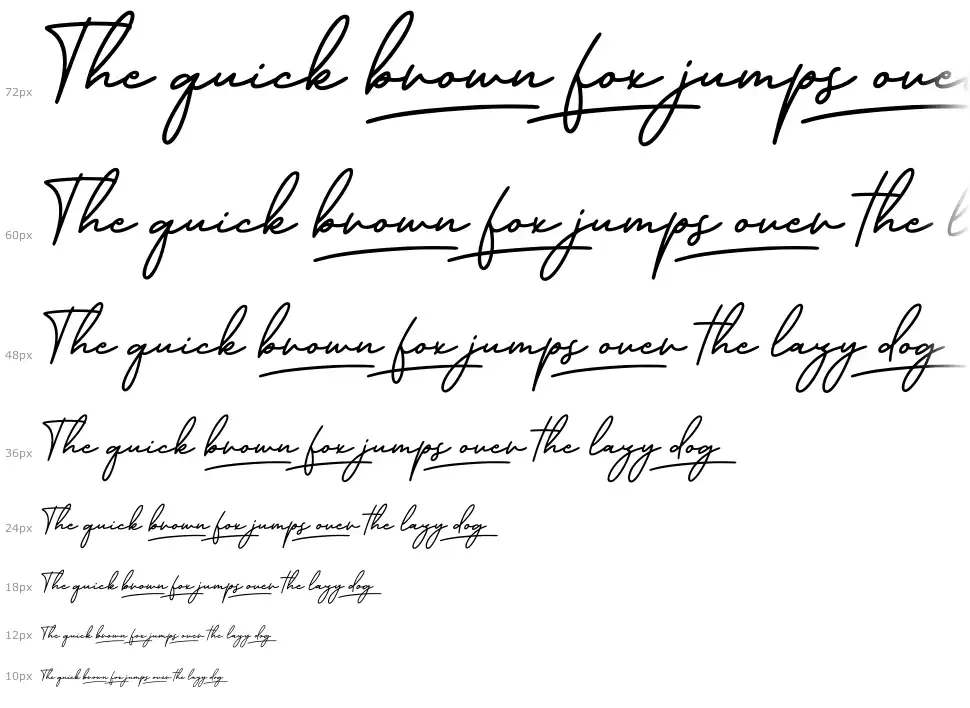 72px The quick brown fox jumps over
60px The quick brown fox jumps over the l
48px The quick brown fox jumps over the lazy dog
36px The quick brown fox jumps over the lazy dog
24px The quick brown fox jumps over the lazy dog
18px The quick brown fox jumps over the lazy dog
12px The quick brown fox jumps over the lazy dog
10px The quick brown fox jumps over the lazy dog